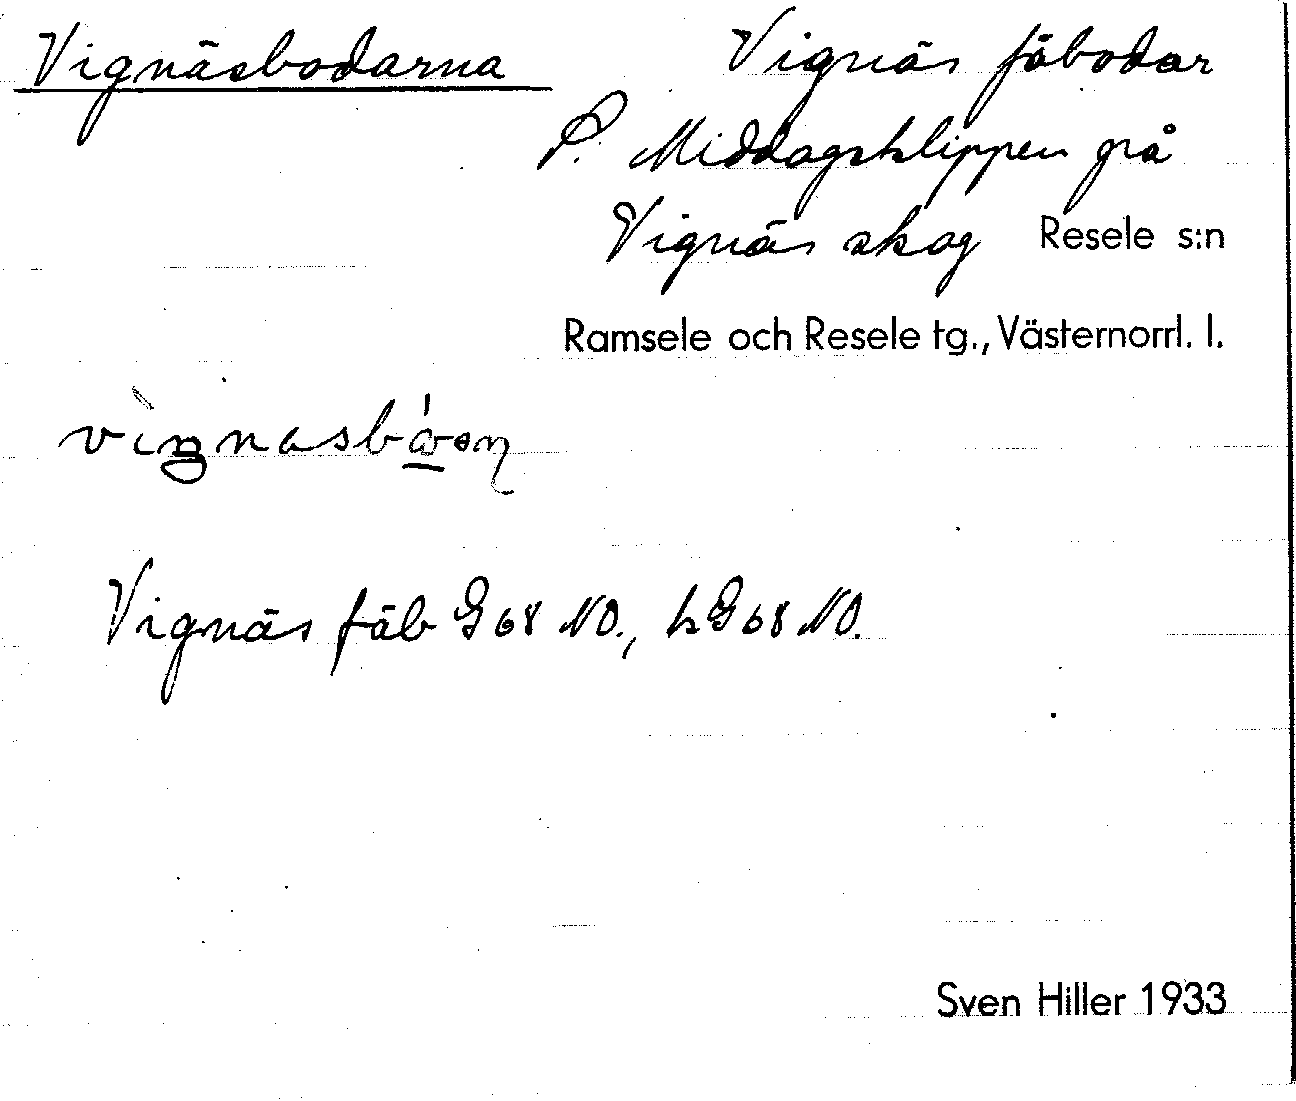 Vignäsbodarna
Vignäs fäbodar
P. Middagsklippen på
Vignäs skog Resele s:n
Ramsele och Resele tg., Västernorrl. l.
Vignäs fäb G68 NO., h G68 NO.
Sven Hiller 1933